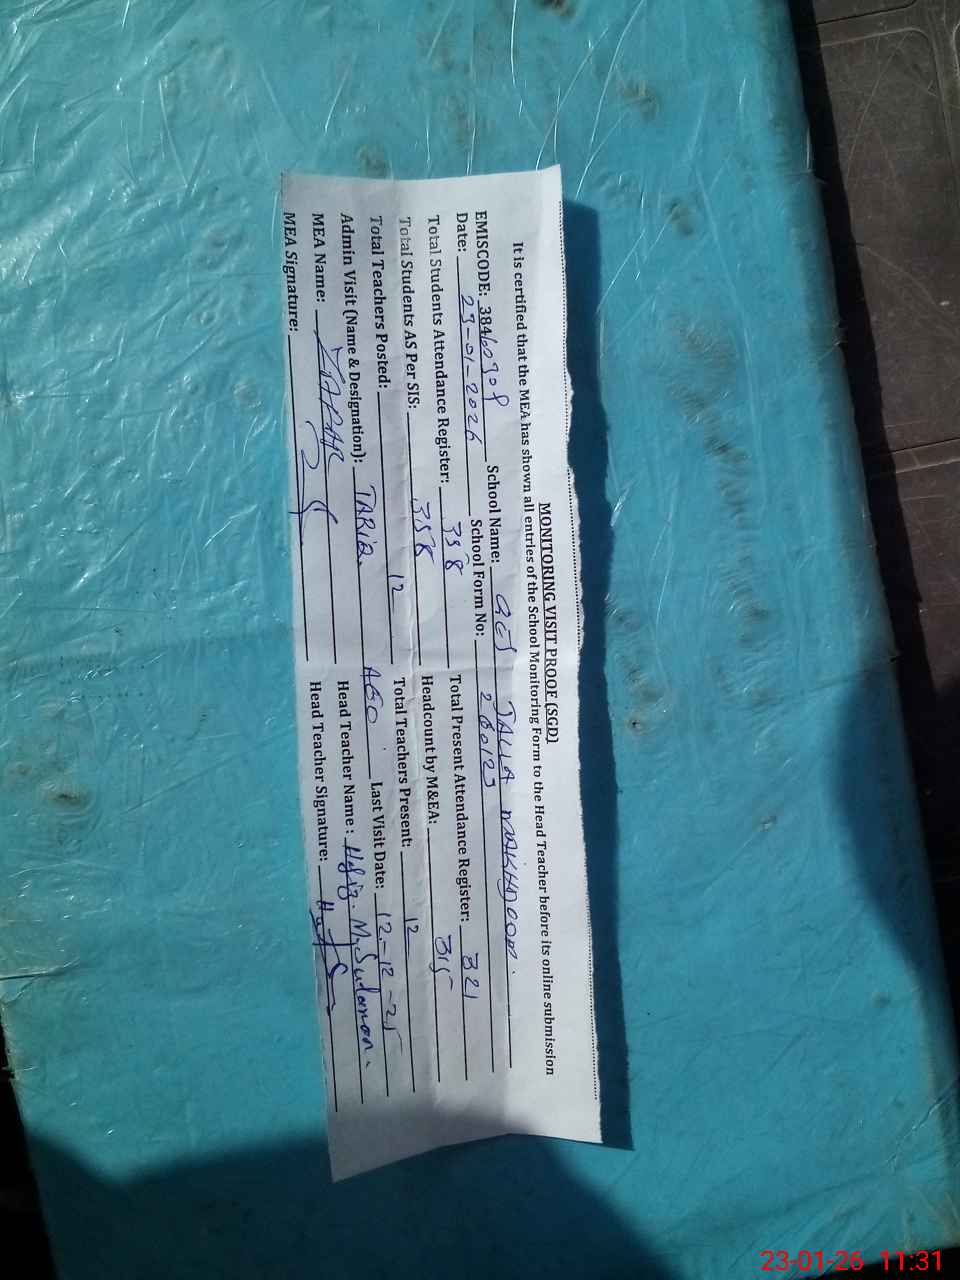 MONITORING VISIT PROOF (SGD)
It is certified that the MEA has shown all entries of the School Monitoring Form to the Head Teacher before its online submission
EMISCODE: 38460909 School Name: GES JALLA MAKHDOOM.
Date: 23-01-2026 School Form No: 260123
Total Students Attendance Register: 358 Total Present Attendance Register: 321
Total Students AS Per SIS: 358 Headcount by M&EA: 315
Total Teachers Posted: 12 Total Teachers Present: 12
Admin Visit (Name & Designation): TARIQ. AEO Last Visit Date: 12-12-25
MEA Name: Head Teacher Name: Hafiz. M. Suleman.
MEA Signature: Head Teacher Signature:
23-01-26 11:31